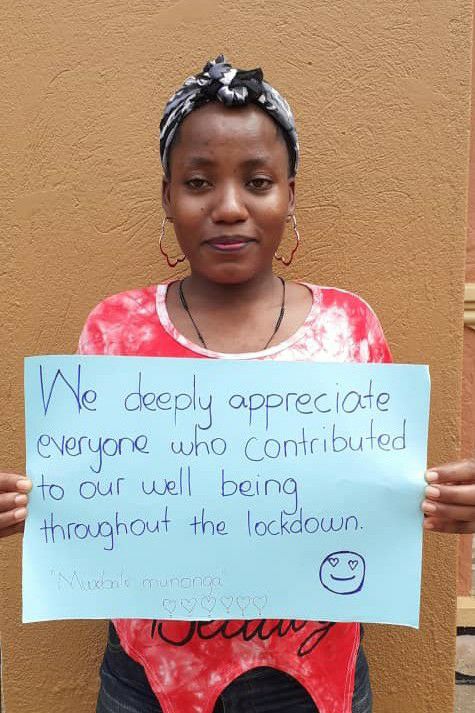 We deeply appreciate
everyone who contributed
to our well being
throughout the lockdown.
"Mwebale munonga"